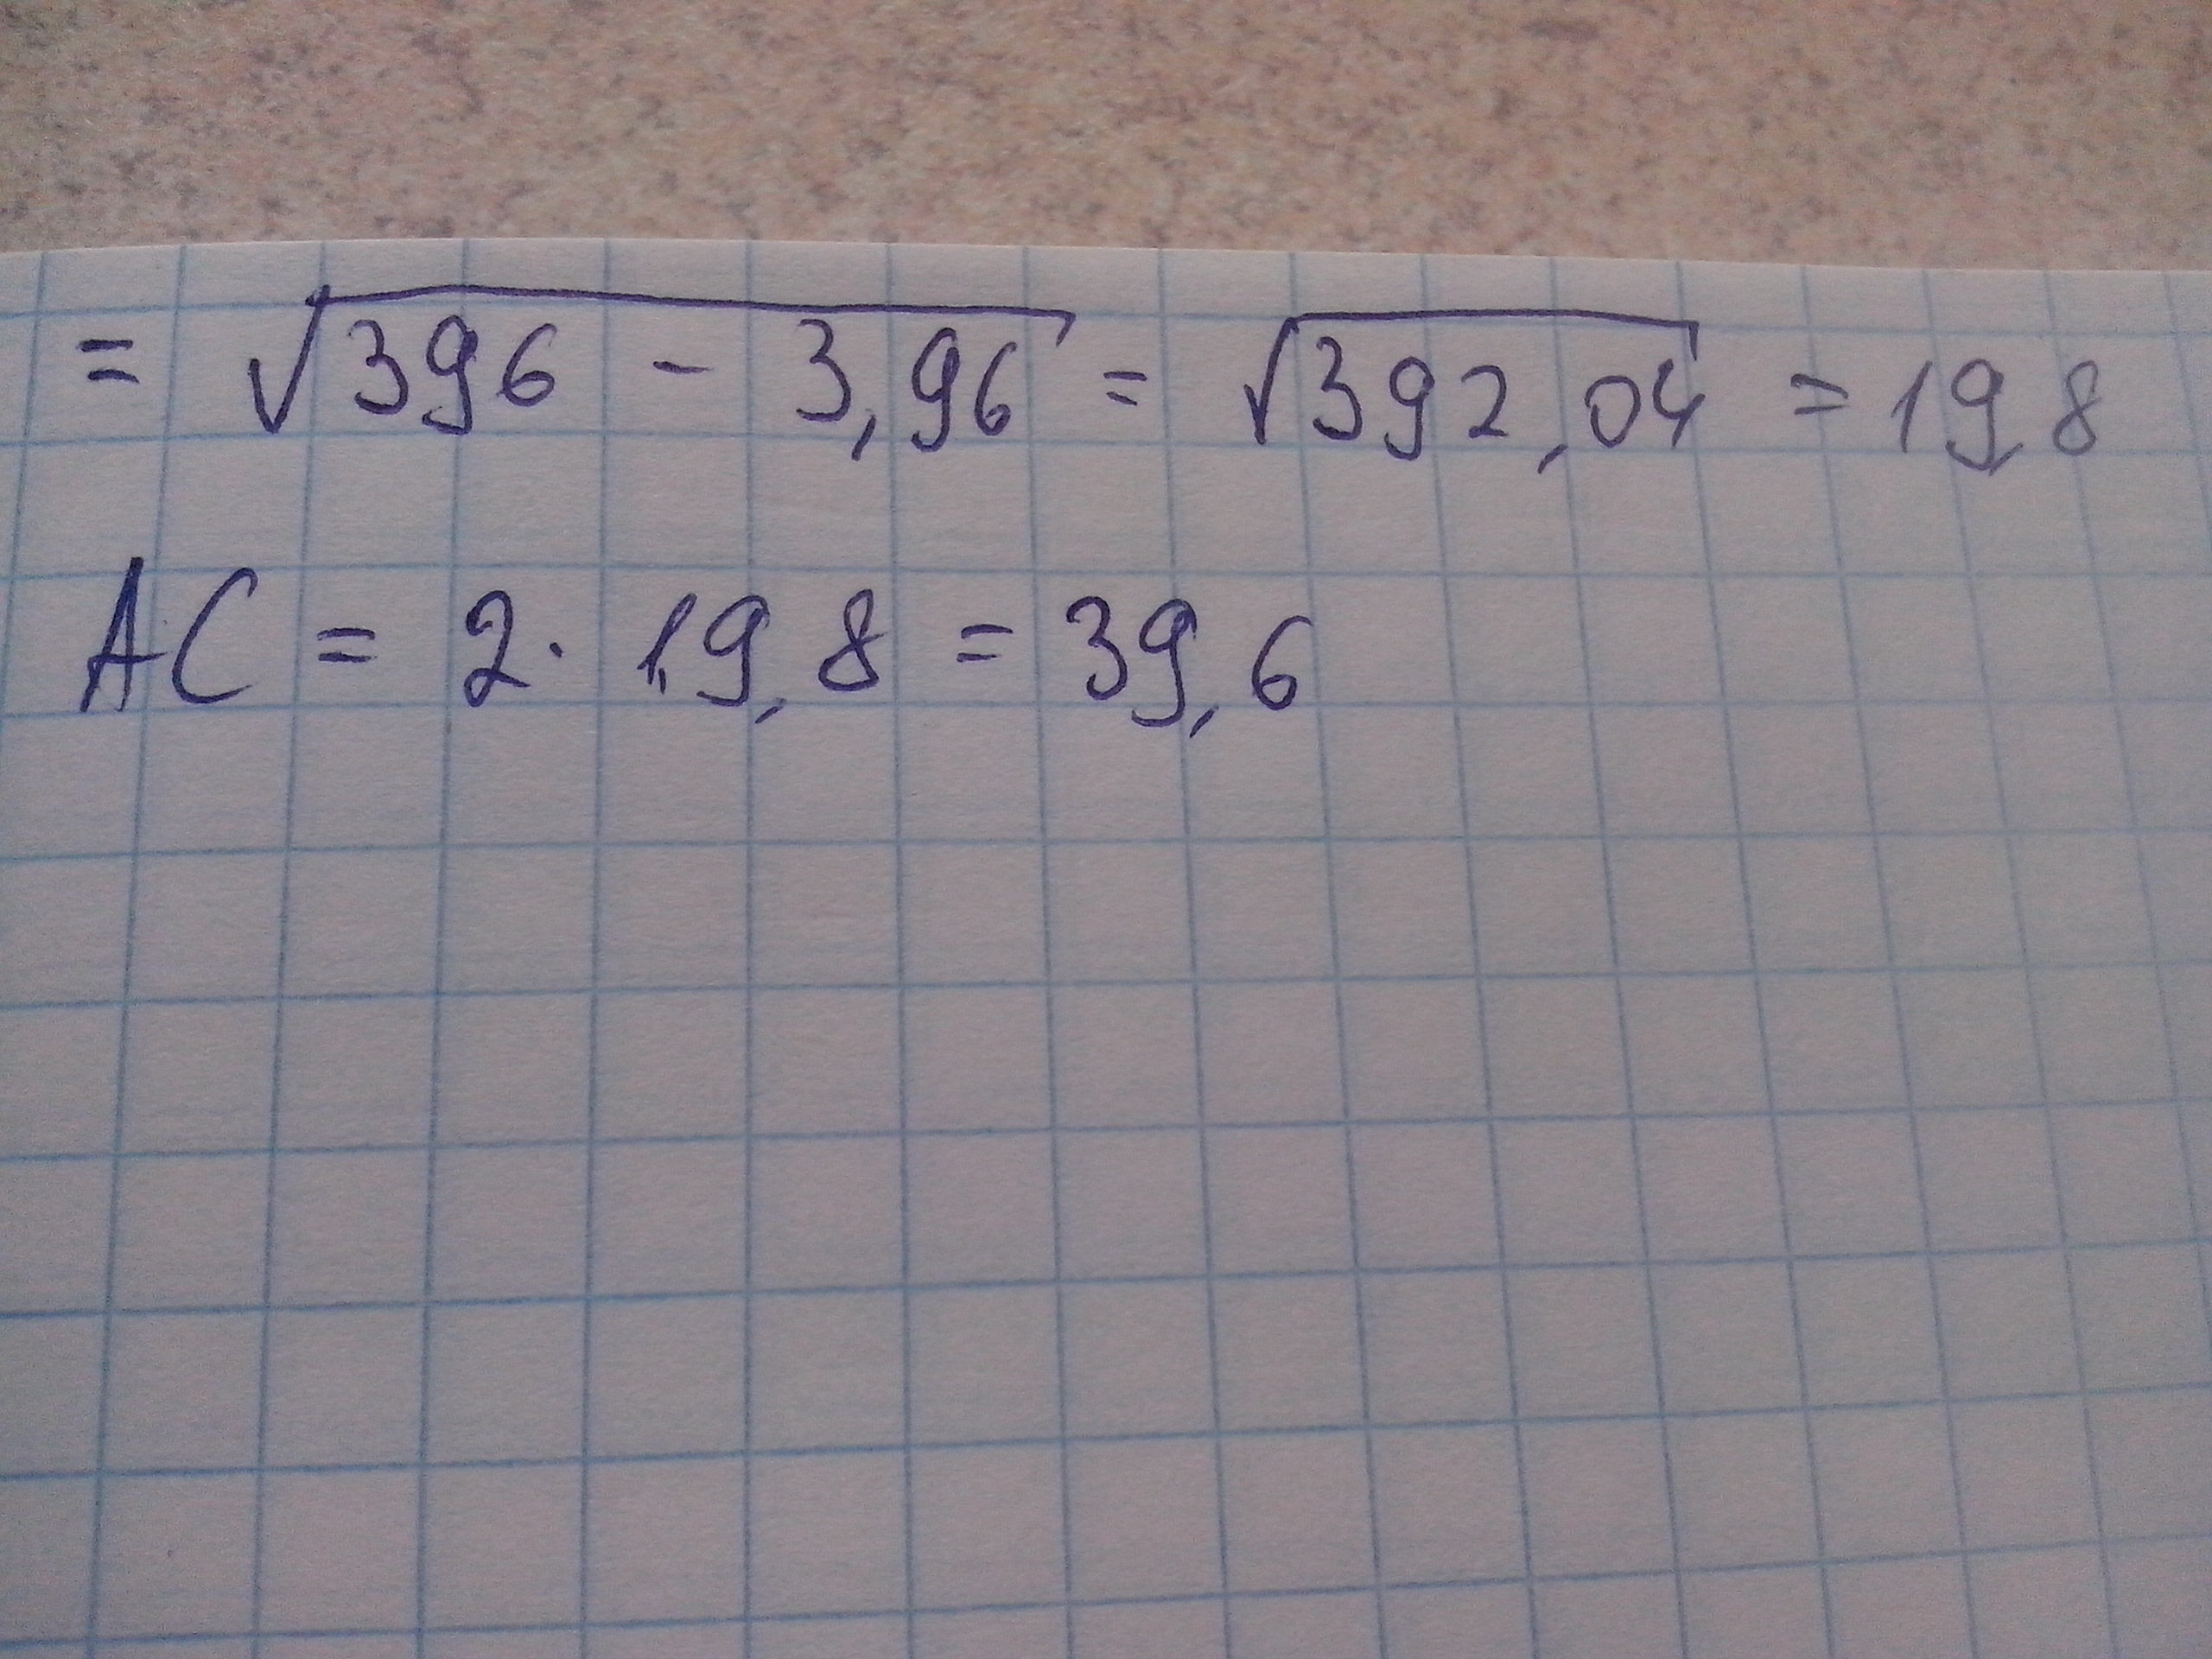 = √396 - 3,96 = √392,04 = 19,8
AC = 2 · 19,8 = 39,6